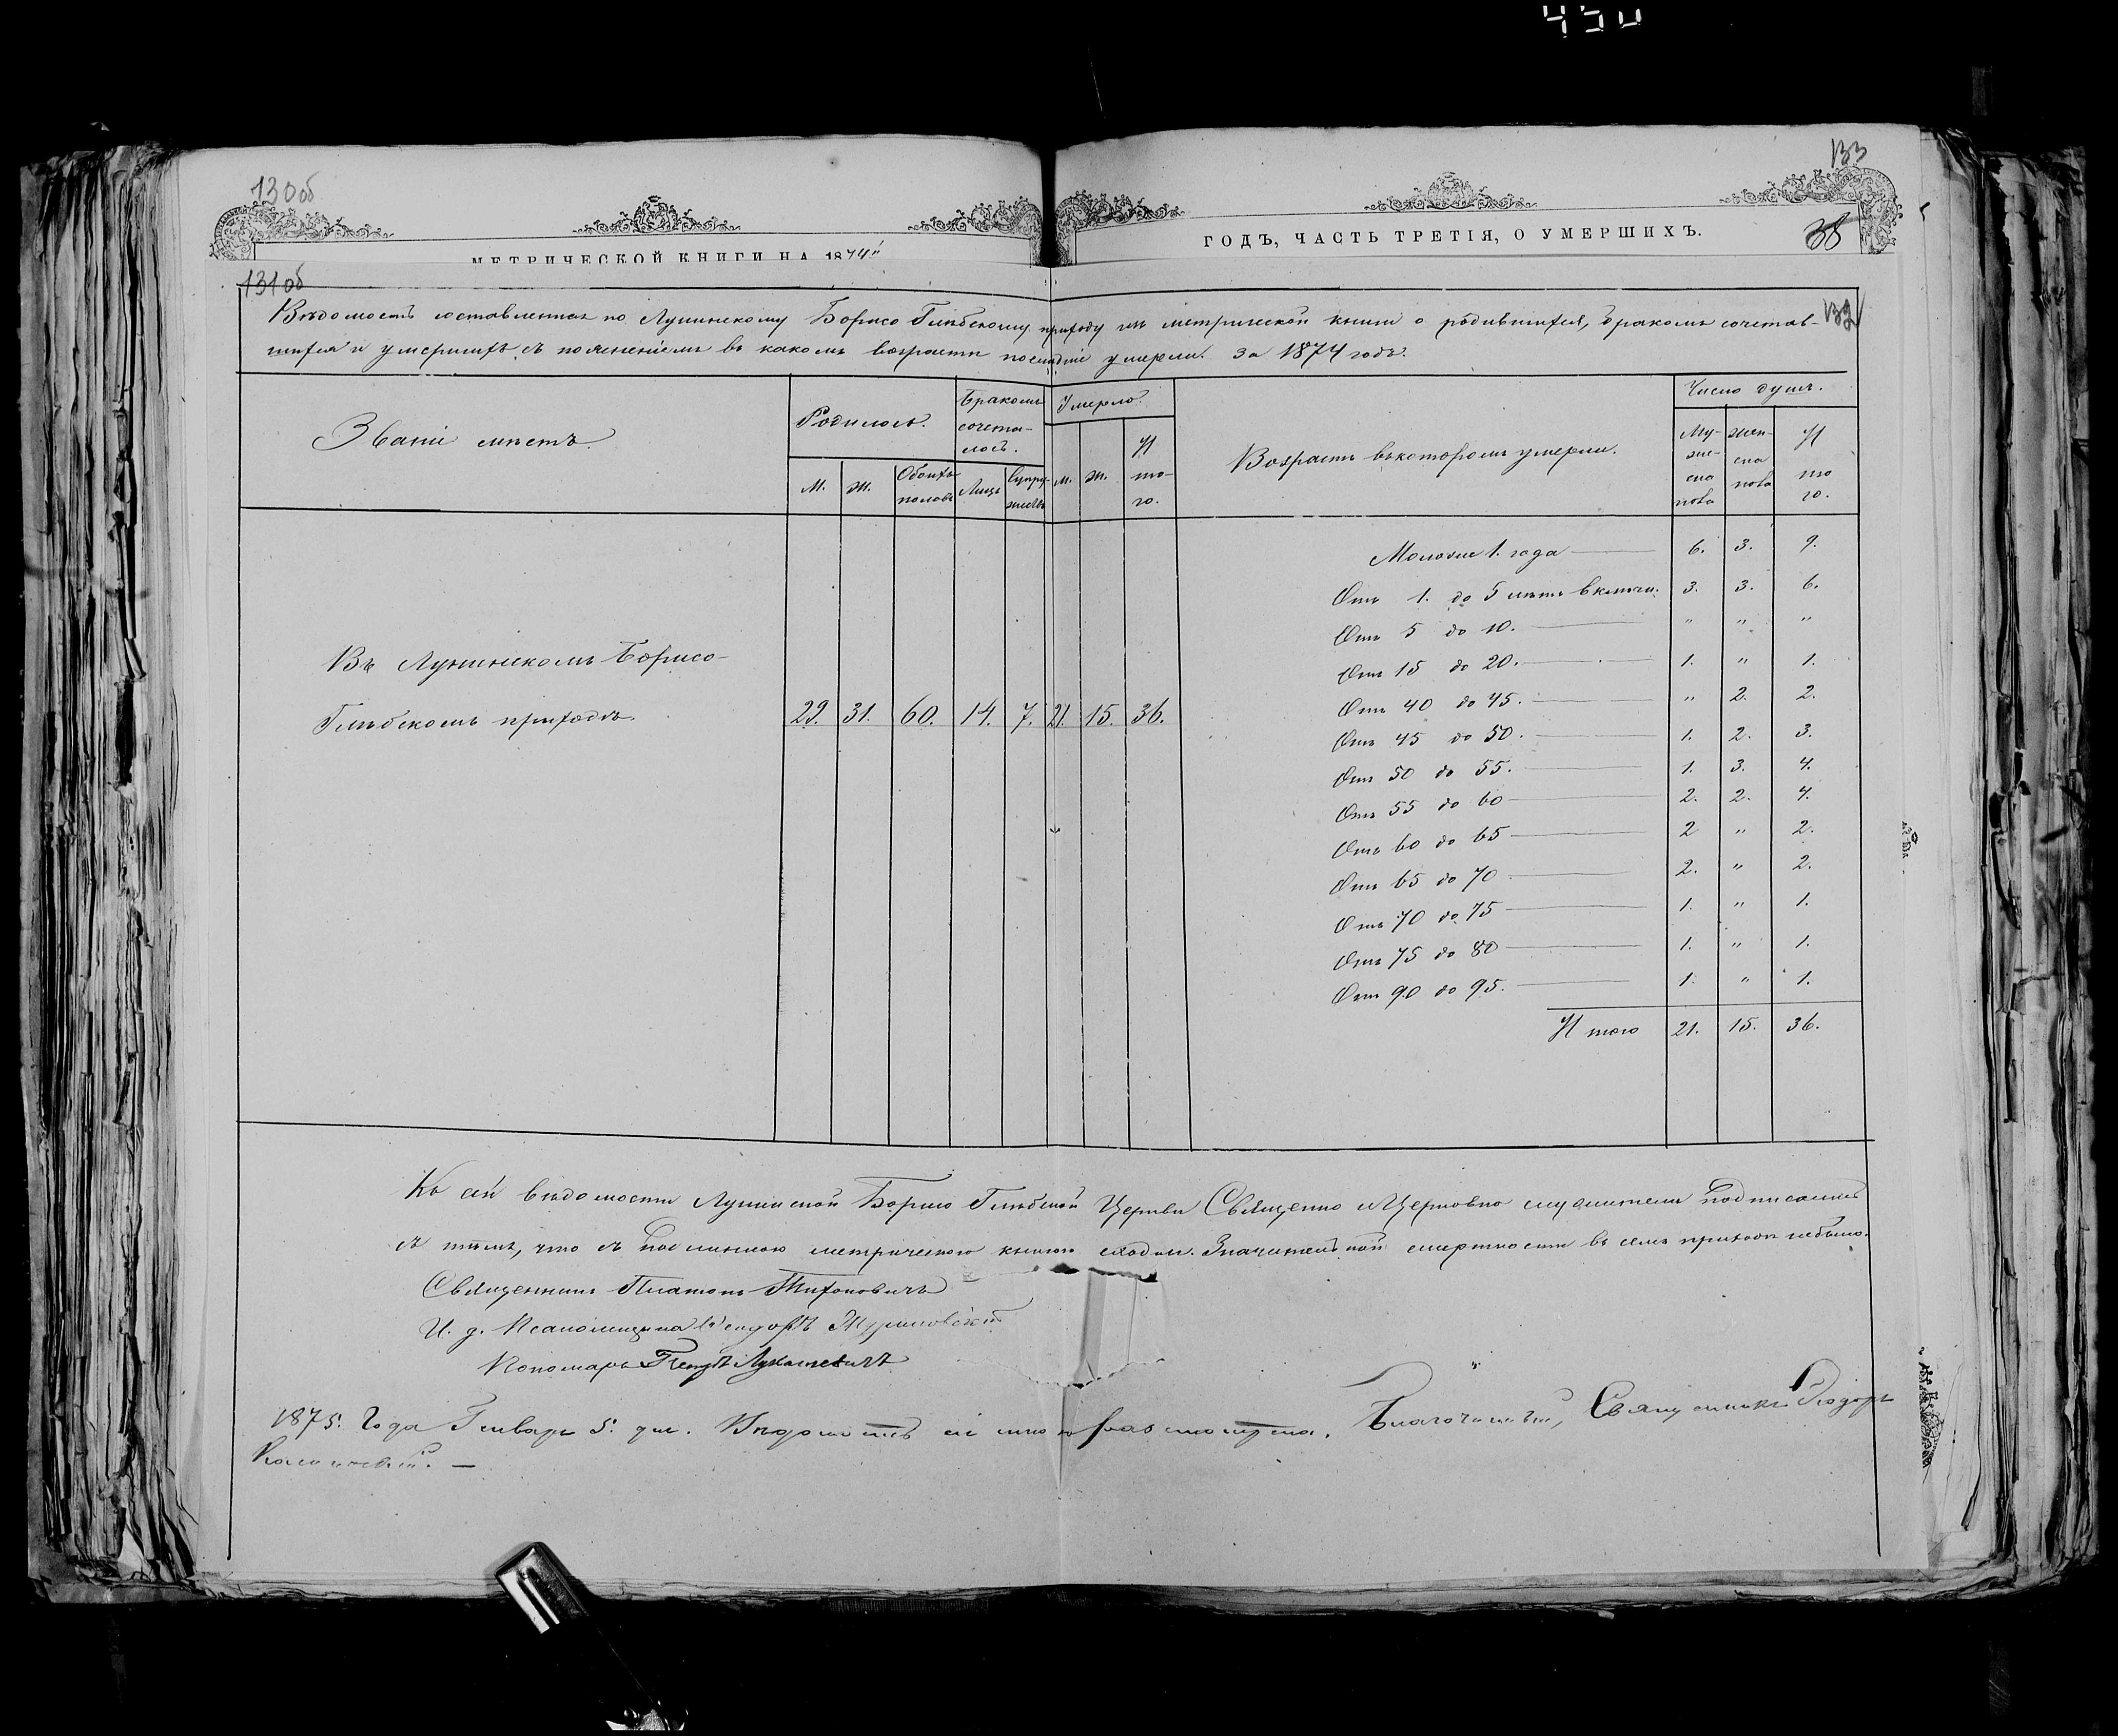 450
130об
133
МЕТРИЧЕСКОЙ КНИГИ НА 1874й
ГОДЪ, ЧАСТЬ ТРЕТІЯ, О УМЕРШИХЪ.
38
131об
132
Вѣдомость составленная по Лунинскому Борисо Глѣбскому приходу изъ метрической книги о родившихся, бракомъ сочетав-
шихся и умершихъ съ поясненіемъ въ какомъ возрастѣ послѣдніе умерли. За 1874 годъ.
Званіе мѣстъ.
Родилось.
Бракомъ сочета-лось.
Умерло.
Возрастъ въ которомъ умерли.
Число душъ.
М.
Ж.
Обоихъ половъ
Лицъ
Супру-жествъ
М.
Ж.
И то-го.
Му-жес-ка пола
Жен-ска пола
И то го.
Въ Лунинскомъ Борисо-
Глѣбскомъ приходѣ.
29. 31. 60. 14. 7. 21. 15. 36.
Моложе 1. года 6. 3. 9.
Отъ 1. до 5 лѣтъ включи. 3. 3. 6.
Отъ 5 до 10. " " "
Отъ 15 до 20. 1. " 1.
Отъ 40 до 45. " 2. 2.
Отъ 45 до 50. 1. 2. 3.
Отъ 50 до 55. 1. 3. 4.
Отъ 55 до 60 2. 2. 4.
Отъ 60 до 65 2 " 2.
Отъ 65 до 70 2. " 2.
Отъ 70 до 75 1. " 1.
Отъ 75 до 80 1. " 1.
Отъ 90 до 95. 1. " 1.
И того 21. 15. 36.
Къ сей вѣдомости Лунинской Борисо Глѣбской Церкви Священно и Церковно служители подписались
съ тѣмъ, что съ подлинною метрическою книгою сходны. Значительной смертности въ семъ приходѣ небыло.
Священникъ Платонъ Тихоновичъ
И. д. Псаломщика Ѳеодоръ
Пономарь Петръ Лукашевичъ
1875. Года Генваря 5. дня. Вѣдомость сія мною разсмотрена. Благочинный, Священникъ Ѳеодоръ